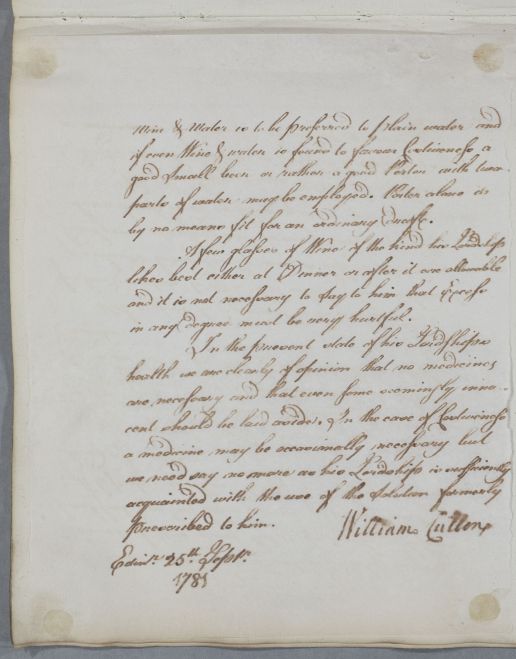 Wine & Water is to be preferred to plain water and
if even Wine & water is found to favour Costiveness a
good Small beer or rather a good Porter with two
parts of water may be employed. Porter alone is
by no means fit for an ordinary Draft.
A few glasses of Wine of the kind his Lordship
likes best either at Dinner or after it are allowable
and it is not necessary to say to him that Excess
in any degree must be very hurtful.
In the present state of his Lordships
health we are clearly of opinion that no medicines
are necessary and that even some seemingly inno-
cent should be laid aside. In the case of Costiveness
a medicine may be occasionally necessary but
we need say no more as his Lordship is sufficiently
acquainted with the use of the Solution formerly
prescribed to him.
William Cullen
Edinr. 25th. Septr.
1781